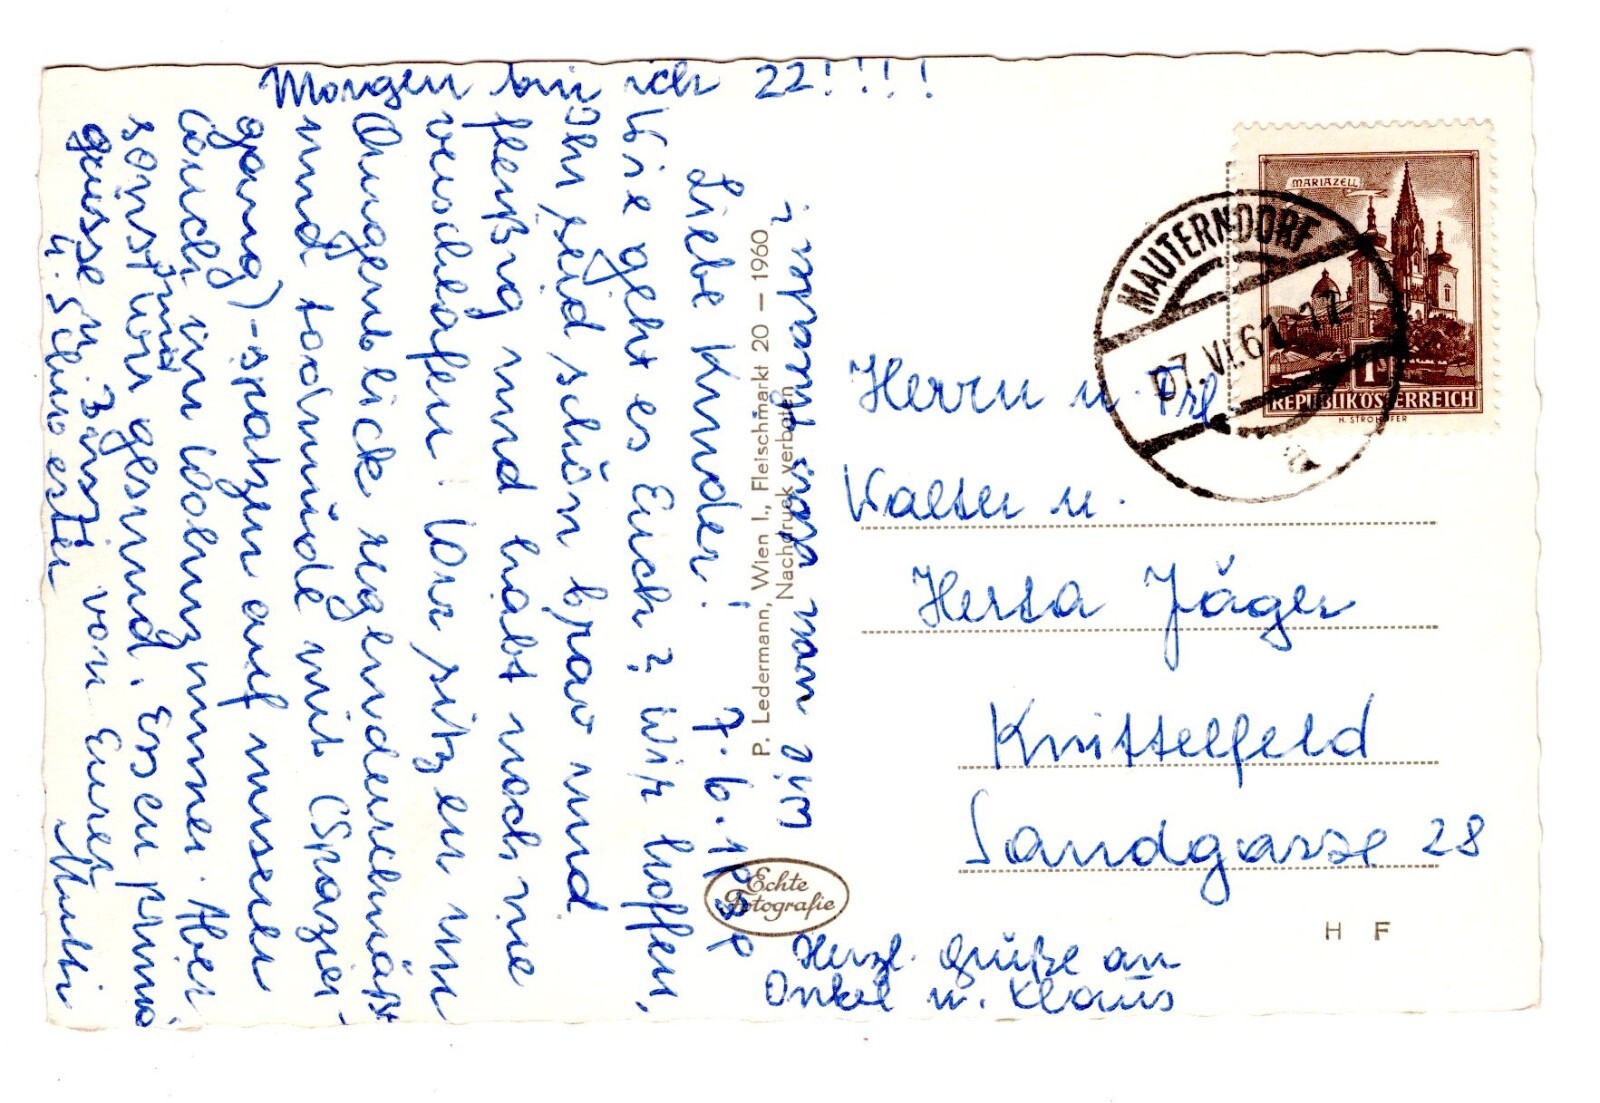 Morgen bin ich 22!!!!
7.6.1961
Liebe Kinder!
Wie geht es Euch? Wir hoffen,
Ihr seid schön brav und
fleißig und habt noch nie
verschlafen! Wir sitzen im
Augenblick regendurchnäßt
und todmüde mit (Spazier-
gang)-spatzen auf unserer
Couch im Wohnzimmer. Aber
sonst wir gesund. Essen prima
sind
grüsse u. Bussi von Eurer Mutti
u. Schwester
wir nur sind
P. Ledermann, Wien I., Fleischmarkt 20 — 1960
Nachdruck verboten
Echte
Fotografie
MARIAZELL
1
REPUBLIK ÖSTERREICH
H. STROHOFER
MAUTERNDORF
07.VI.61
a
Herrn u. Frl
Walter u.
Herta Jäger
Knittelfeld
Sandgasse 28
H F
Herzl. Grüße an
Onkel u. Klaus